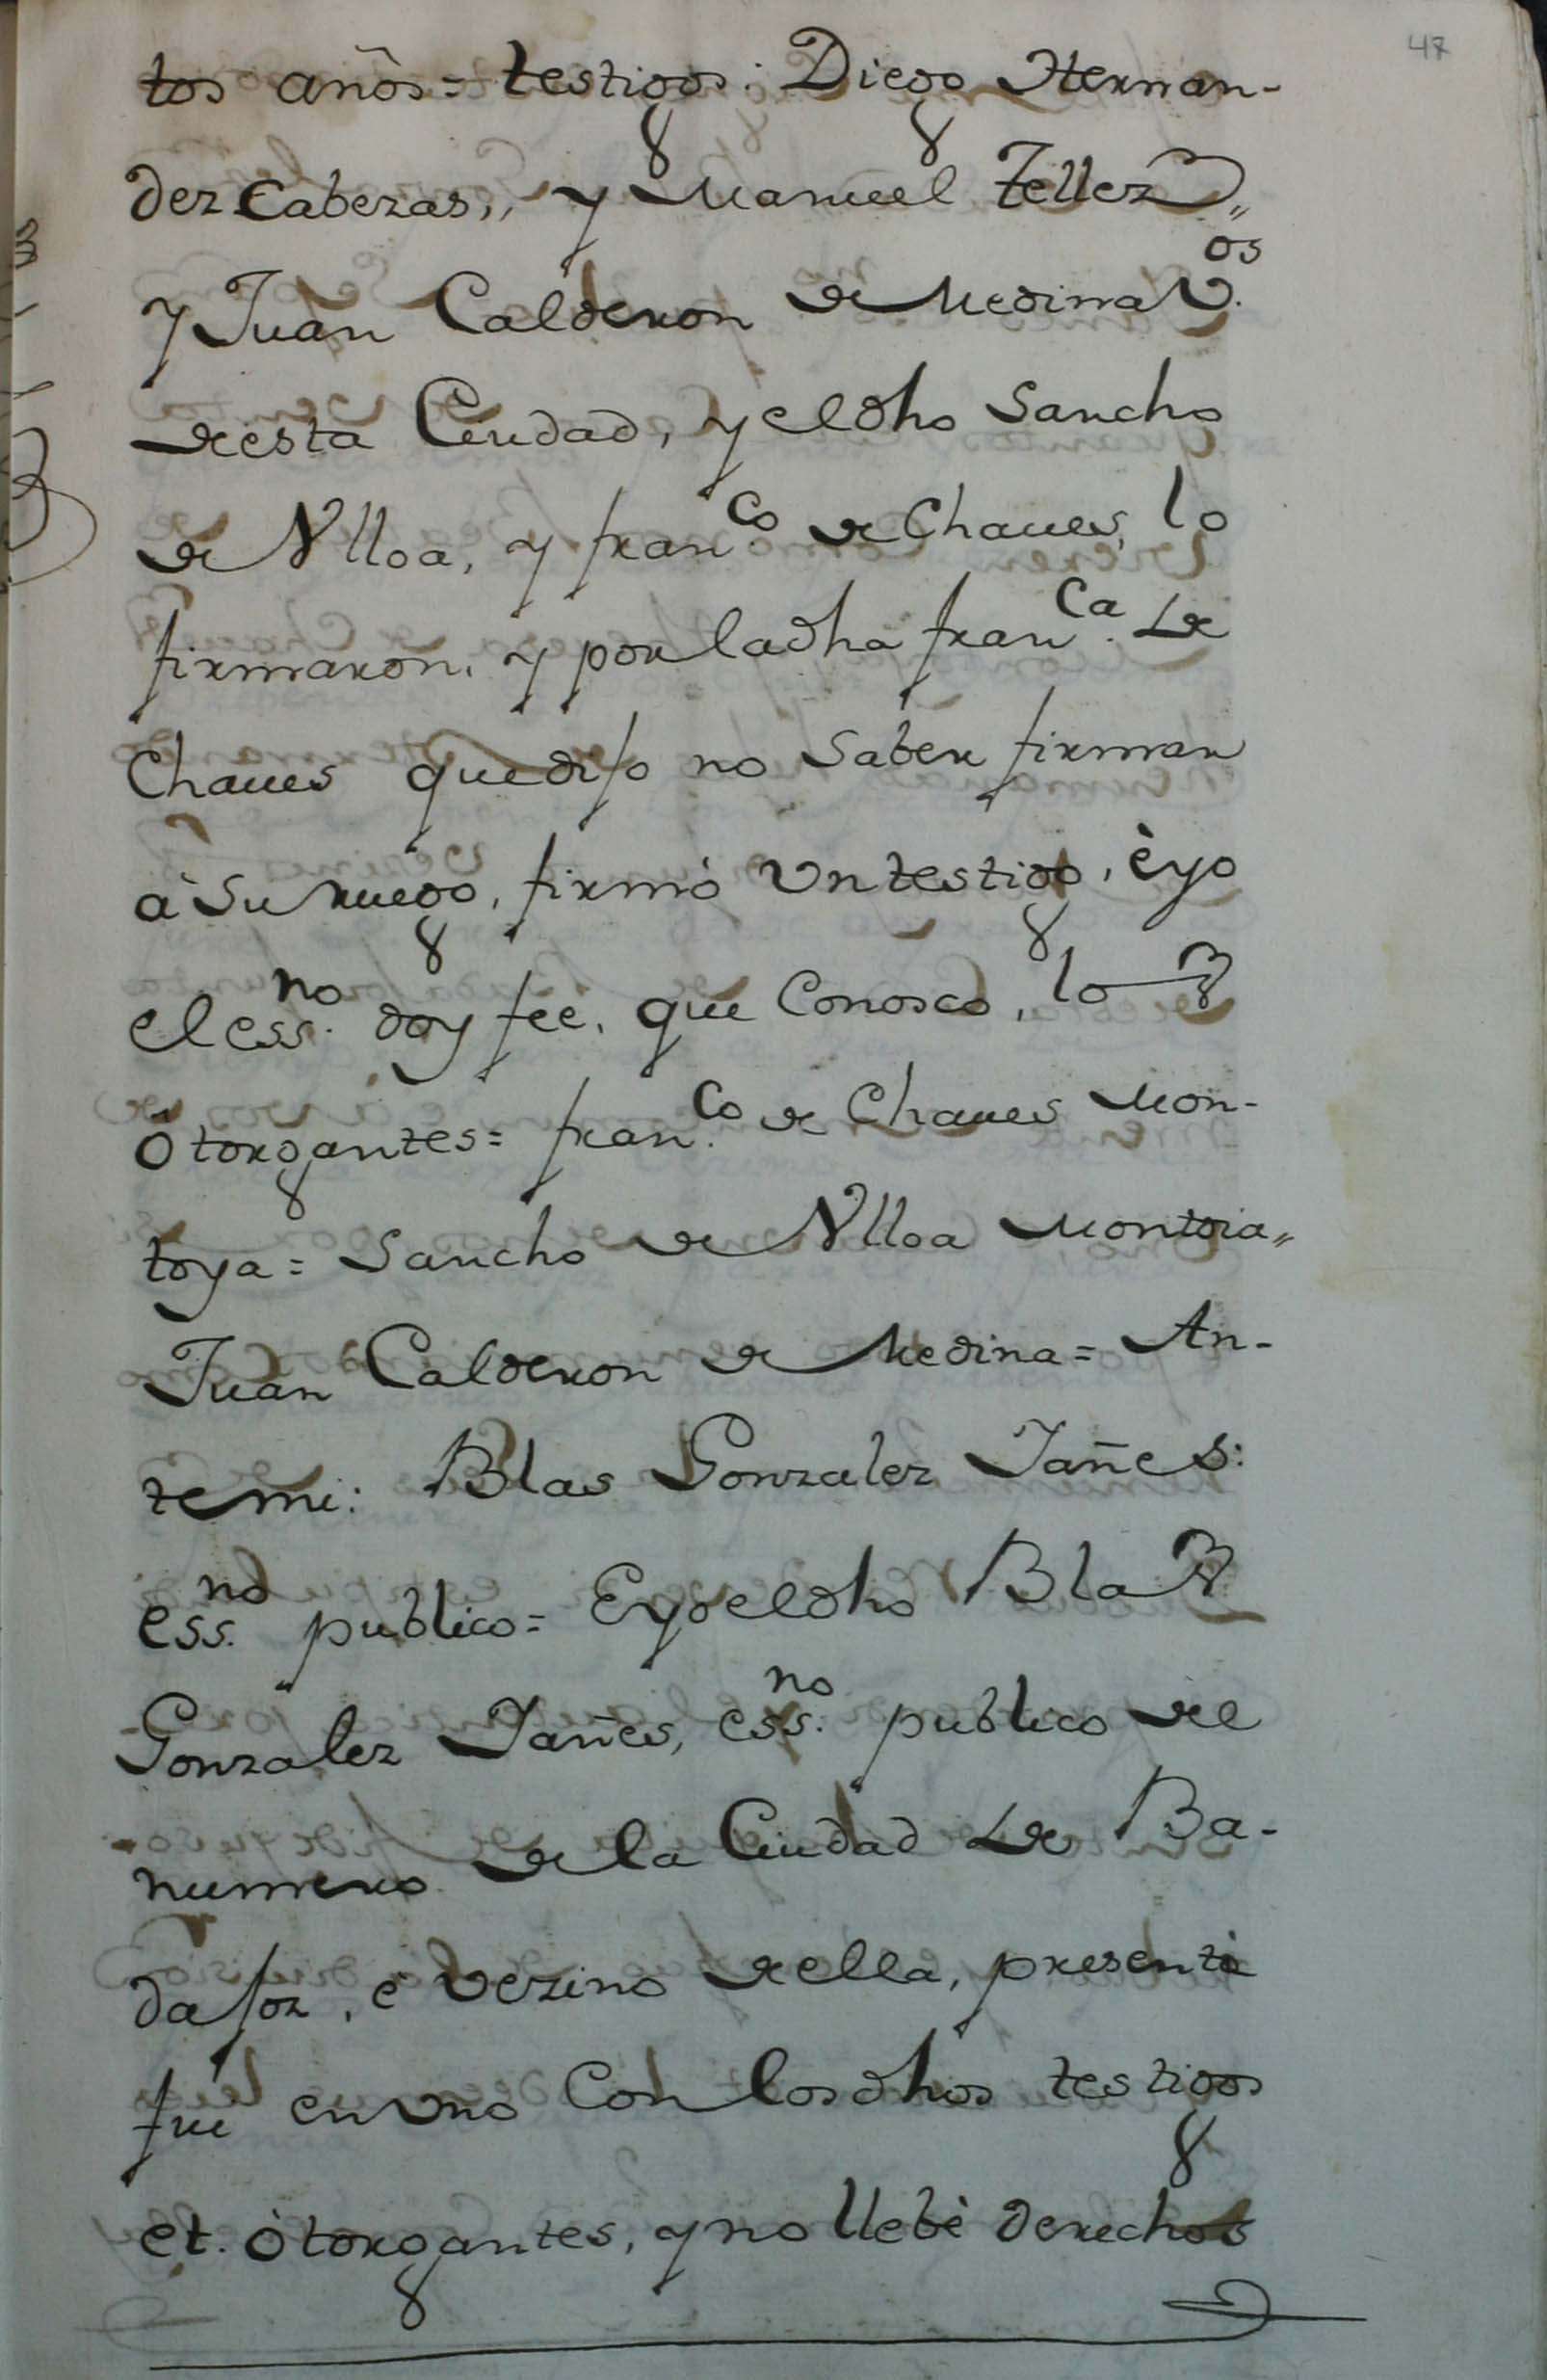 47
tos años = testigos: Diego Hernan-
dez Cabezas,, y Manuel Tellez,,
y Juan Calderon de Medina V.os
de esta Ciudad, y el dho Sancho
de Vlloa, y fran.co de Chaues, lo
firmaron, y por la dha fran.ca de
Chaues que dijo no Saber firmar
à Su ruego, firmó Vn testigo, èyo
el ess.no doy fee, que Conosco, los
Otorgantes = fran.co de Chaues Mon-
toya = Sancho de Vlloa Montoia,,
Juan Calderon de Medina = An-
te mi: Blas Gonzalez Jañes:
ess.no publico = Eyo el dho Blas
Gonzalez Jañes, ess.no publico del
numero de la Ciudad de Ba-
dajoz, è Vezino de ella, presente
fui en vno Con los dhos testigos
et. òtorgantes, y no llebè derechos